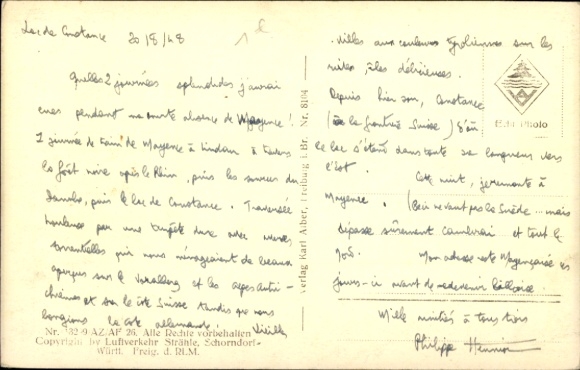 Lac de Constance 20/8/48
Quelles 2 journées splendides j'aurai
eues pendant ma courte absence de Mayence !
1 journée de train de Mayence à Lindau à travers
la forêt noire après le Rhin, puis les sources du
Danube, puis le lac de Constance. Traversée
par une tempête avec
torrentielles qui nous ménageaient de beaux
aperçus sur le Vorarlberg et les alpes
et sur la côte Suisse tandis que nous
longions la côte allemande. Vieilles
villes aux couleurs tyroliennes sur les
rives, îles délicieuses.
Depuis hier soir, Constance
(à la frontière Suisse) d'où
le lac s'étend dans toute sa longueur vers
l'est.
Cette nuit, je remonte à
Mayence. (Ceci ne vaut pas la Suède... mais
dépasse sûrement Cambrai et tout le
Mon adresse reste Mayençaise
jours-ci avant de redevenir lilloise.
Mille amitiés à tous trois
Philippe
Verlag Karl Alber, Freiburg i. Br. Nr. 8104
Echt Photo
Nr. 132 9-AZ-AF 26. Alle Rechte vorbehalten
Copyright by Luftverkehr Strähle, Schorndorf-
Württ. Freig. d. RLM.